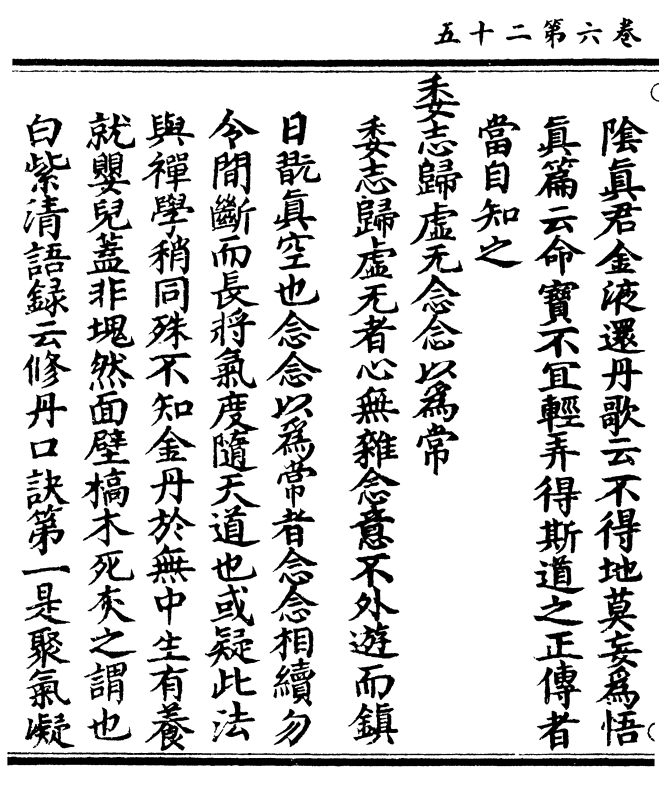 卷六第二十五
陰眞君金液還丹歌云不得地莫妄爲悟
眞篇云命寶不宜輕弄得斯道之正傳者
當自知之
委志歸虛无念念以爲常
委志歸虛无者心無雜念意不外遊而鎭
日翫眞空也念念以爲常者念念相續勿
令間斷而長將氣度隨天道也或疑此法
與禪學稍同殊不知金丹於無中生有養
就嬰兒蓋非塊然面壁槁木死灰之謂也
白紫清語録云修丹口訣第一是聚氣凝